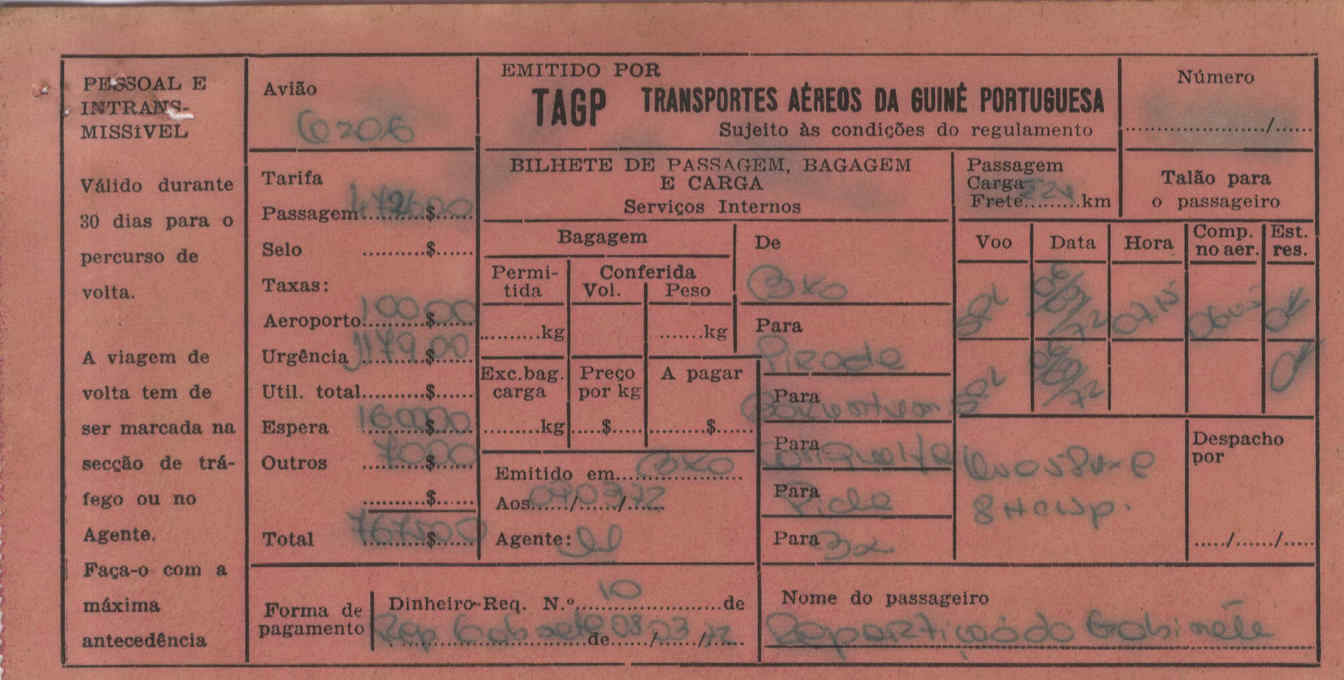 PESSOAL E
INTRANS-
MISSÍVEL
Válido durante
30 dias para o
percurso de
volta.
A viagem de
volta tem de
ser marcada na
secção de trá-
fego ou no
Agente.
Faça-o com a
máxima
antecedência
Avião
6206
Tarifa
Passagem..........$......
Selo ..........$......
Taxas:
Aeroporto 100,00
Urgência 1179,00
Util. total..........$......
Espera 1600,00
Outros 70,00
..........$......
Total 7675,00
EMITIDO POR
TAGP TRANSPORTES AÉREOS DA GUINÉ PORTUGUESA
Sujeito às condições do regulamento
Número
....................../......
BILHETE DE PASSAGEM, BAGAGEM
E CARGA
Serviços Internos
Passagem
Carga
Frete.........km
Talão para
o passageiro
Bagagem
Permi-
tida
Conferida
Vol. Peso
.........kg .......kg
Exc.bag.
carga
Preço
por kg
A pagar
.........kg .....$..... .........$.....
Emitido em BXO
Aos 07/03/72
Agente:
De
BXO
Para
Pirada
Para
Para
Para
Para Bx
Voo Data Hora Comp.
no aer. Est.
res.
SPL 07/15 OK
SPL OK
Despacho
por
...../....../.....
Forma de
pagamento
Dinheiro-Req. N.º 10 de
Rep Gabinete de 08/03/72
Nome do passageiro
Repartição do Gabinete